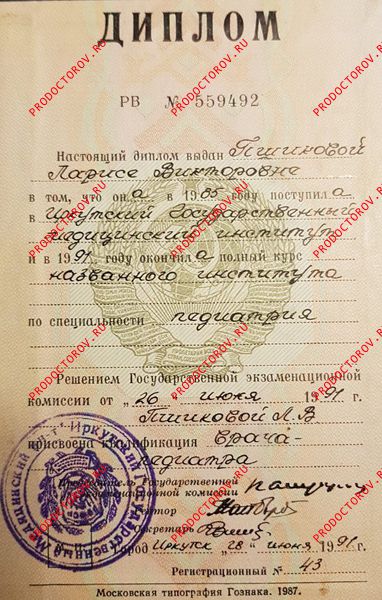 ДИПЛОМ
РВ № 559492
Настоящий диплом выдан Пшиковой
Ларисе Викторовне
в том, что он а в 1985 году поступил а
в Иркутский Государственный
медицинский институт
и в 1991 году окончил а полный курс
названного института
по специальности педиатрия
Решением Государственной экзаменационной
комиссии от „26 " июня 1991 г.
Пшиковой Л.В
присвоена квалификация Врача-
педиатра
Председатель Государственной
экзаменационной комиссии
Ректор
Секретарь
Город Иркутск „28" июня 1991 г.
Регистрационный № 43
Московская типография Гознака. 1987.
PRODOCTOROV.RU